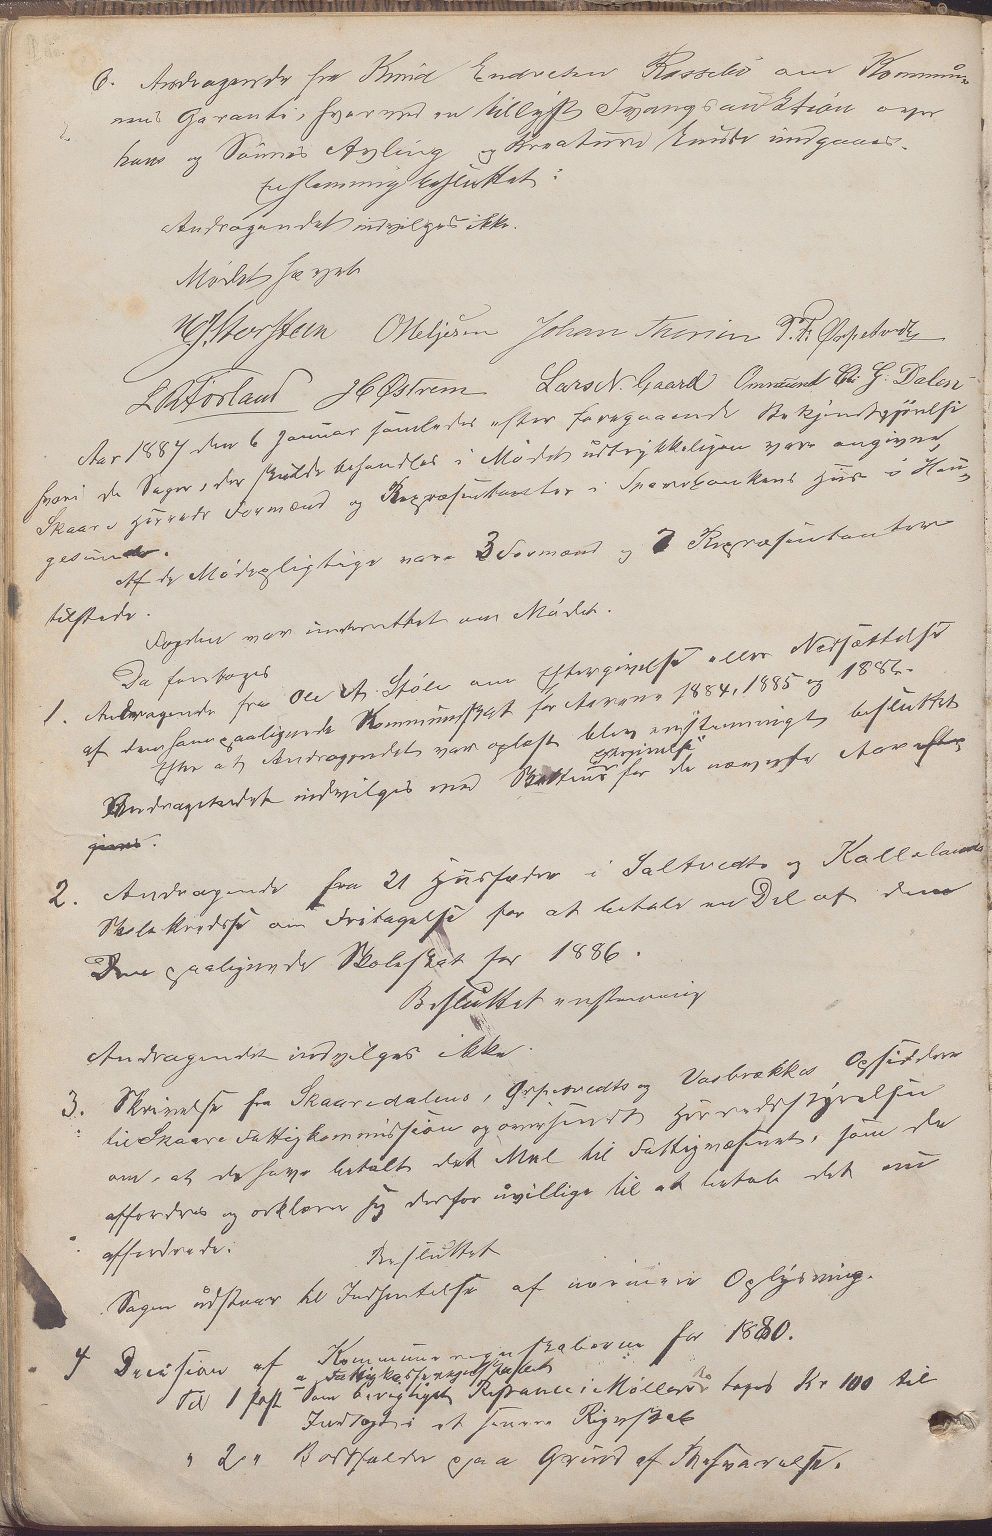 6. Andragende fra Knud Endresen Rossebø om Kommu-
nens Garanti, hvorved en tillyst Tvangsauktion over
hans og Sønnes Avling og Kreature kunde undgaaes.
Enstemmig besluttet:
Andragendet indvilges ikke.
Mødet hævet
Storsteen O Meljesen Johan Thorsen
L Førland H Østrem Lars N. Gaard Omund G. Dalen
Aar 1887 den 6 Januar samledes efter foregaaende Bekjendtgjørelse
hvori de Sager, der skulde behandles i Mødet udtrykkeligen vare angivne,
Skaare Herreds Formænd og Repræsentanter i Sparebankens Hus i Hau-
gesund.
Af de Mødepligtige vare 3 Formænd og 7 Repræsentanter
tilstede.
Fogden var underrettet om Mødet.
Da foretoges
1. Andragende fra Ole A. Støle om Eftergivelse eller Nedsættelse
af den ham paalignede Kommuneskat for Aarene 1884, 1885 og 1886.
Efter at Andragendet var oplæst blev enstemmigt besluttet
Andragendet indvilges med Skattens eftergivelse for de nævnte Aar efter
gives.
2. Andragende fra 21 Husfædre i Saltvedt og Kallelands
Skolekredse om Fritagelse for at betale en Del af den
Dem paalignede Skoleskat for 1886.
Besluttet enstemmig
Andragendet indvilges ikke.
3. Skrivelse fra Skaaredalens, Grepevedts og Vasbrækkes Opsiddere
til Skaare Fattigkommission og oversendt Herredsstyrelsen
om, at de have betalt det Mel til Fattigvæsenet, som der
affordres og erklærer sig derfor uvillige til at betale det nu
affordrede.
Besluttet
Sagen udstaar til Indhentelse af nærmere Oplysning.
4 Decision af Kommuneregnskaberne for 1880.
a Fattigkasseregnskabet
Til 1 Post Som berigtiget Restance i Møllers tages Kr 100 til
Indtægt i et senere Regnskab
" 2 " Bortfalder paa Grund af Besvarelse.